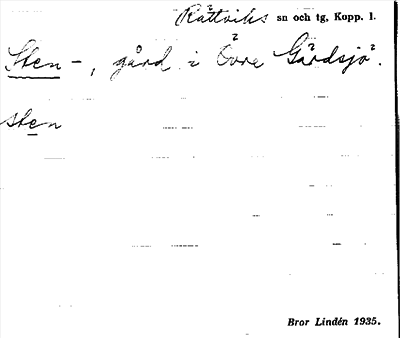 Rättviks sn och tg, Kopp. l.
Sten -, gård i Övre Gärdsjö.
sten
Bror Lindén 1935.